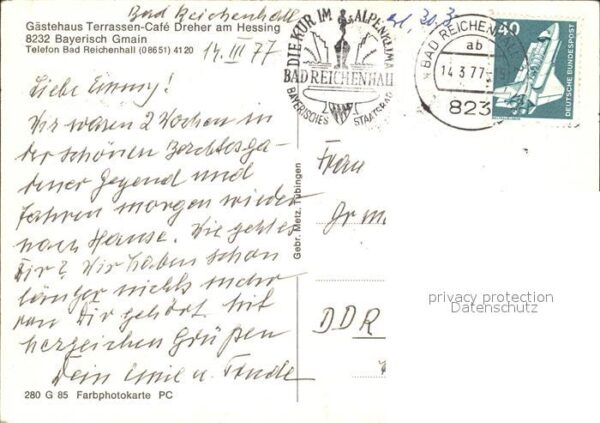 Bad Reichenhall
Gästehaus Terrassen-Café Dreher am Hessing
8232 Bayerisch Gmain
Telefon Bad Reichenhall (08651) 4120
14. III 77
Liebe Emmy!
Wir waren 2 Wochen in
der schönen Berchtesga-
dener Gegend und
fahren morgen wieder
nach Hause. Wie geht es
Dir? Wir haben schon
länger nichts mehr
von Dir gehört. Mit
herzlichen Grüßen
Dein Emil u. Trude
280 G 85 Farbphotokarte PC
Gebr. Metz, Tübingen
DIE KUR IM ALPENKLIMA
BAD REICHENHALL
BAYERISCHES STAATSBAD
BAD REICHENHALL
ab
14.3.77
823
40
DEUTSCHE BUNDESPOST
Frau
DDR
privacy protection
Datenschutz